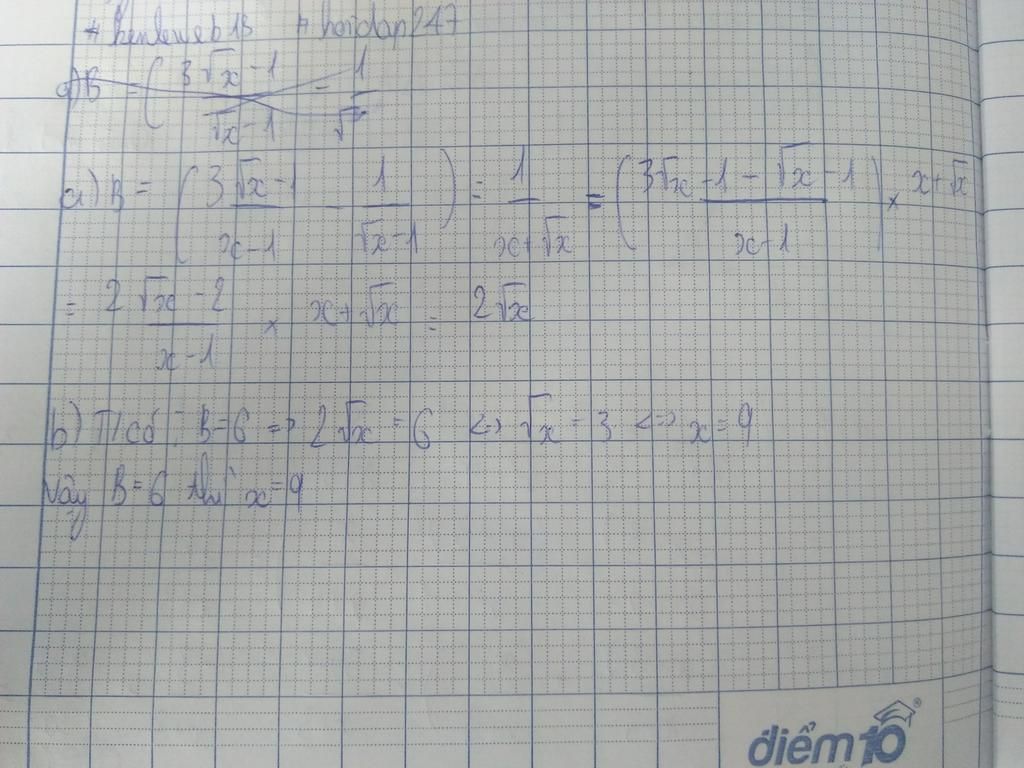 # kenleweb1B # hoidap247
a) B = ( 3√x - 1 / √x - 1 - 1 / √x
a) B = ( 3√x - 1 / x - 1 - 1 / √x - 1 ) : 1 / x + √x = ( 3√x - 1 - √x - 1 / x - 1 ) × x + √x
= 2√x - 2 / x - 1 × x + √x = 2√x
b) Ta có : B = 6 => 2√x = 6 <=> √x = 3 <=> x = 9
Vậy B = 6 thì x = 9
điểm10